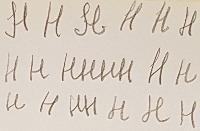 Н Н Н Н Н Н
Н Н нннн Н Н
Н Н нн Н Н Н